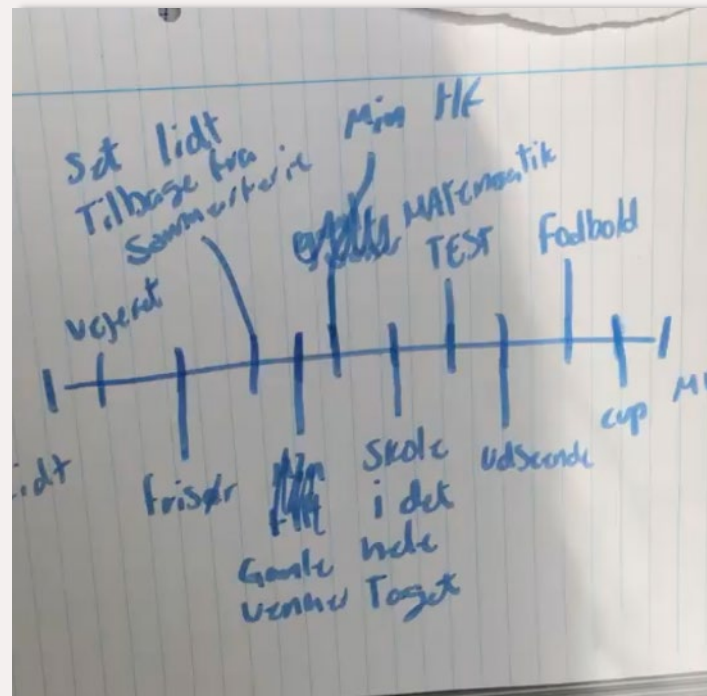 Set lidt
Tilbage fra
Sommerferie
Min HF
MATematik
TEST
Fodbold
vejeret
lidt
Frisør
Gamle
venner
Skole
i det
hele
Taget
Udseende
cup